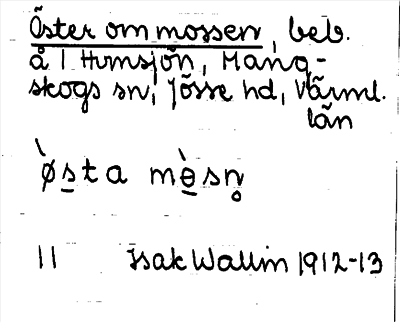 Öster om mossen, beb.
å 1 Humsjön, Mang-
skogs sn, Jösse hd, Värml.
län
`ø̱sta mɵ̱̀sn̥
11 Isak Wallin 1912-13